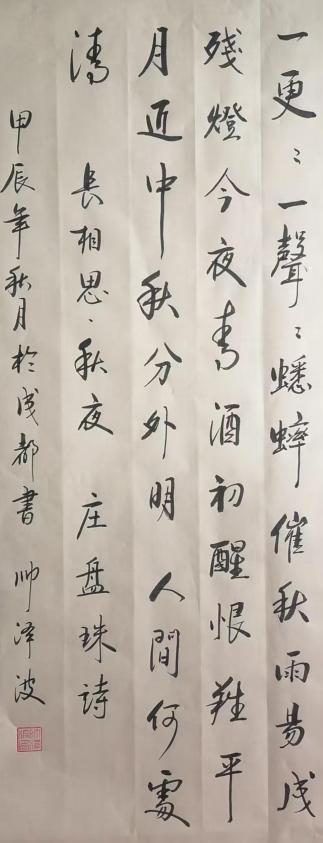 一更々一聲々蟋蟀催秋雨易成
殘燈今夜青酒初醒恨難平
月近中秋分外明 人間何處
清 長相思·秋夜 庄盤珠詩
甲辰年秋月於成都書 帥澤波